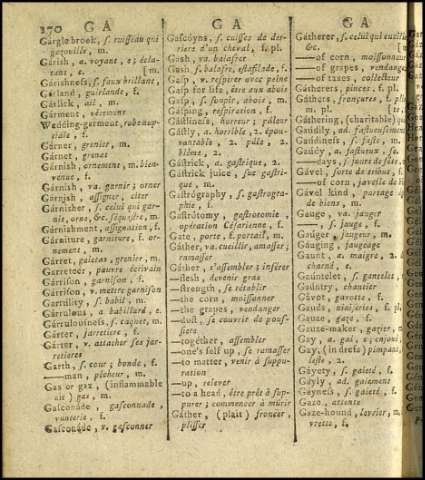 170 G A
Gárgle brook, s. ruisseau qui
gazouille, m.
Gárish, a. voyant, e; écla-
tant, e. [m.
Gárishness, s. faux brillant,
Gárland, guirlande, f.
Gárlick, ail, m.
Gárment, vêtement
Wedding-garment, robe nup-
tiale, f.
Gárner, grenier, m.
Gárnet, grenat
Gárnish, ornement, m. bien-
venue, f.
Gárnish, va. garnir; orner
Garnish, assigner, citer
Gárnisher, s. celui qui gar-
nit, orne, &c. séquestre, m.
Gárnishment, assignation, f.
Gárniture, garniture, f. or-
nement, m.
Gárret, galetas, grenier, m.
Garreteer, pauvre écrivain
Gárrison, garnison, f.
Gárrison, v. mettre garnison
Garrúlity, babil, m.
Gárrulous, a babillard, e.
Gárrulousness, s. caquet, m.
Gárter, jarretière, f.
Gárter, v. attacher ses jar-
retieres
Garth, s. tour; bonde, f.
——man, pêcheur, m.
Gas or gaz, (inflammable
air) gaz, m.
Gasconáde, gasconnade,
vanterie, f.
Gasconáde, v. gasconner
G A
Gascóyns, s. cuisses de der-
riere d'un cheval, f. pl.
Gash, va. balafrer
Gash, s. balafre, estafilade, f.
Gasp, v. respirer avec peine
Gasp for life, être aux abois
Gasp, s. soupir, abois, m.
Gásping, respiration, f.
Gástliness, horreur; pâleur
Gástly, a. horrible, 2. épou-
vantable, 2. pâle, 2.
blême, 2.
Gástrick, a. gastrique, 2.
Gástrick juice, suc gastri-
que, m.
Gastrógraphy, s. gastrogra-
phie, f.
Gastrótomy, gastrotomie,
opération Césarienne, f.
Gate, porte, f. portail, m.
Gáther, va. cueillir, amasser;
ramasser
Gáther, s'assembler; inférer
—flesh, devenir gras
—strength, se rétablir
—the corn, moissonner
—the grapes, vendanger
—dust, se couvrir de pous-
siere
—together, assembler
—one's self up, se ramasser
—to matter, venir à suppu-
ration
—up, relever
—to a head, être prêt à sup-
purer; commencer à mûrir
Gáther, (plait) froncer,
plisser
G A
Gátherer, s. celui qui cueille
&c. [m.
——of corn, moissonneur
——of grapes, vendangeur
——of taxes, collecteur
Gátherers, pincer, f. pl.
Gáthers, fronçures, f. plis,
m. pl. [f.
Gáthering, (charitable)
Gaúdily, ad. fastueusement
Gaúdiness, s. faste, m.
Gaúdy, a. fastueux,
——days, jours de fête,
Gável, sorte de
——of corn, javelle de
Gável kind, partage
de biens, m.
Gauge, va. jauger
——, s. jauge, f.
Gaúger, jaugeur, m.
Gauging, jaugeage
Gaunt, a. maigre, 2.
charné, e.
Gaúntelet, s. gantelet,
Gaúntry, chantier
Gávot, gavotte, f.
Gauds, niaiseries, f. pl.
Gauze, gaze, f.
Gauze-maker, gazier,
Gay, a. gai, e; enjoué,
Gay, (in dress) pimpant,
leste, 2.
Gáyety, s. gaieté, f.
Gáyly, ad. gaiement
Gáyness, s. gaieté, f.
Gaze, attente
Gaze-hound, levrier, m.
vrette, f.